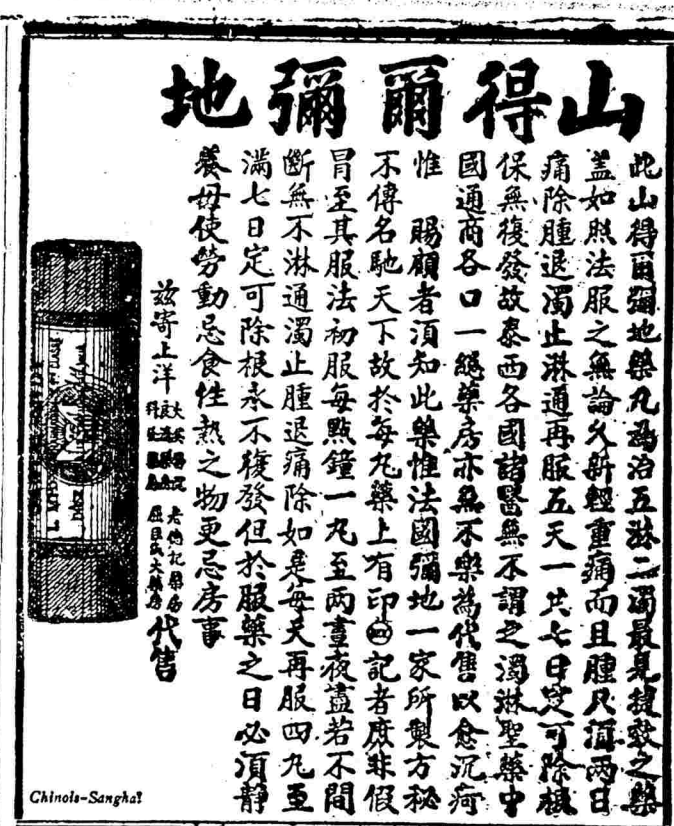 山得爾彌地
此山得爾彌地藥丸為治五淋二濁最見捷效之藥
蓋如照法服之無論久新輕重痛而且腫只須兩日
痛除腫退濁止淋通再服五天一共七日定可除根
保無復發故泰西各國諸醫無不謂之濁淋聖藥中
國通商各口一緫藥房亦無不樂為代售以愈沉疴
惟 賜顧者須知此藥惟法國彌地一家所製方秘
不傳名馳天下故於每丸藥上有印記者庶非假
冒至其服法初服每點鐘一丸至兩晝夜盡若不間
斷無不淋通濁止腫退痛除如是每天再服四丸至
滿七日定可除根永不復發但於服藥之日必須靜
養毋使勞動忌食性熱之物更忌房事
茲寄上洋
老德記藥房
屈臣氏大藥房
代售
Chinois-Sanghaï